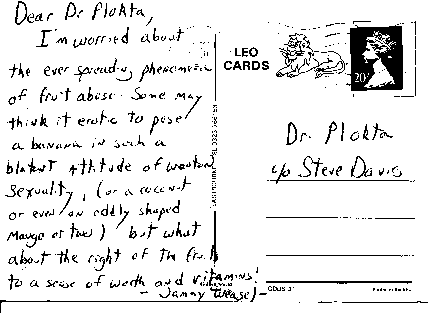 Dear Dr Plokta,
I'm worried about
the ever spreading phenomenon
of fruit abuse. Some may
think it erotic to pose
a banana in such a
blatent attitude of wanton
sexuality, (or a coconut
or even an oddly shaped
Mango or two) but what
about the right of the fruit
to a sense of worth and vitamins!
- Jammy Weasel -
LEO
CARDS
20
Dr. Plokta
c/o Steve Davies